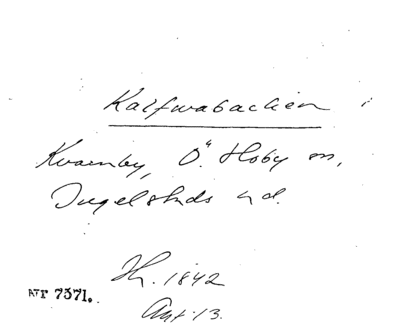 Kalfwabacken i
Kvarnby, Ö. Hoby sn,
Ingelstads hd.
Th. 1842
Akt. 13.
ATF 7371.